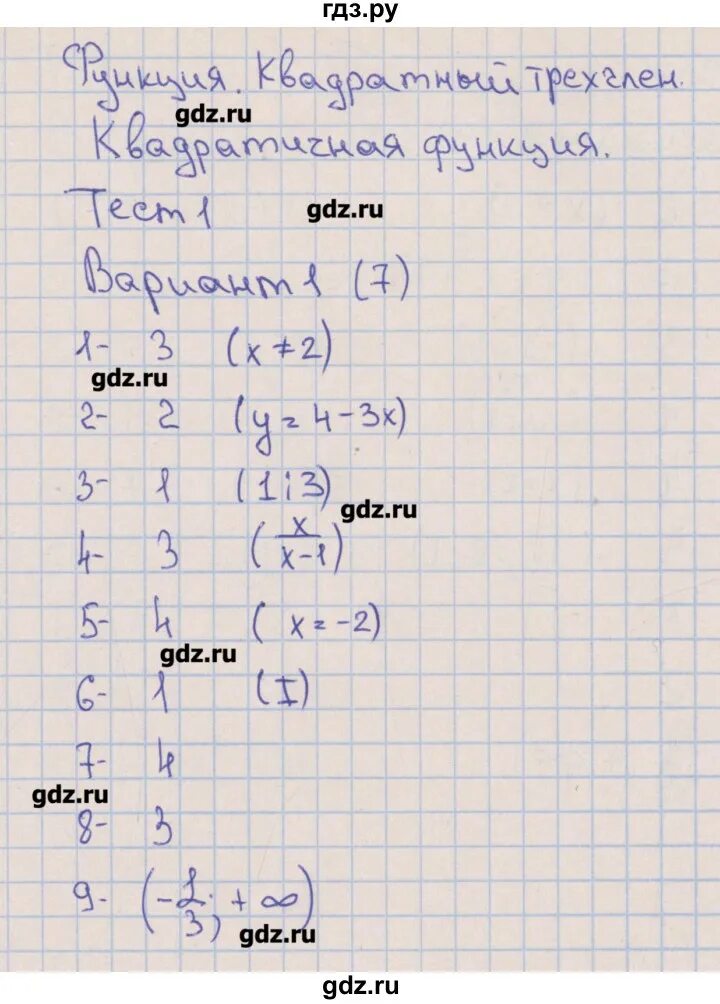 гдз.ру
Функция. Квадратный трехчлен.
gdz.ru
Квадратичная функция.
Тест 1 gdz.ru
Вариант 1 (7)
1- 3 (x ≠ 2)
gdz.ru
2- 2 (y = 4 - 3x)
3- 1 (1; 3)
gdz.ru
4- 3 (x/(x-1))
5- 4 (x = -2)
gdz.ru
6- 1 (I)
7- 4
gdz.ru
8- 3
9- (-1/3; + ∞)
gdz.ru
gdz.ru